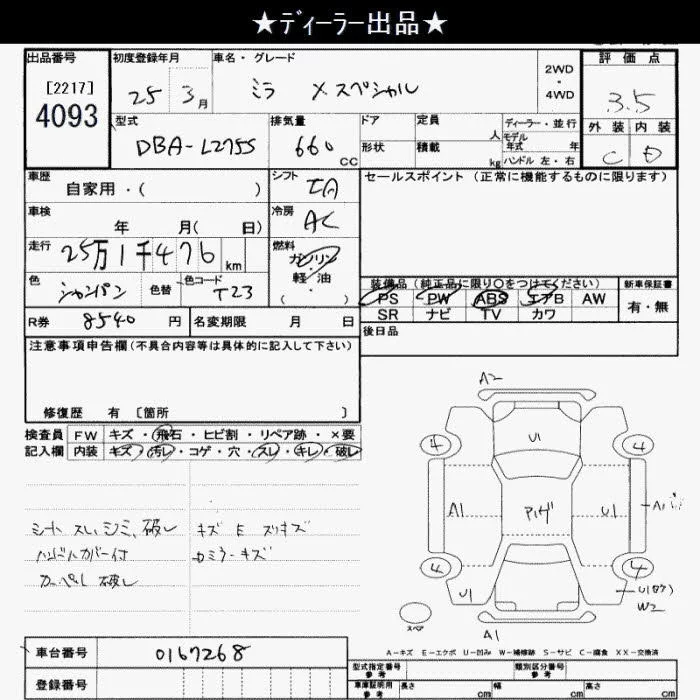 ★ディーラー出品★
出品番号 初度登録年月 車名・グレード 2WD・4WD 評価点
[2217] 4093
25 3月 ミラ Xスペシャル 3.5
型式 排気量 ドア 定員 人 ディーラー・並行 外装 内装
DBA-L275S 660 CC 形状 積載 kg モデル年式 年 ハンドル 左・右 C D
車歴 シフト セールスポイント(正常に機能するものに限ります)
自家用・( ) IA
車検 冷房
年 月( 日) AC
走行 燃料
25万1千476 km ガソリン・軽油
色 色替 色コード ( ・ )
シャンパン T23
装備品(純正品に限り○をつけてください) 新車保証書
PS PW ABS エアB AW 有・無
SR ナビ TV カワ
R券 8540円 名変期限 月 日 後日品
注意事項申告欄(不具合内容等は具体的に記入して下さい)
修復歴 有 〔箇所 〕
検査員 FW キズ・飛石・ヒビ割・リペア跡・×要
記入欄 内装 キズ・汚レ・コゲ・穴・スレ・キレ・破レ
シート スレ、シミ、破レ キズ E スリキズ
ハンドルカバー付 Rミラーキズ
カーペット 破レ
A2
4 U1 4
A1 U1
4 4
U1 W2
U1 A1
スペア
A-キズ E-エクボ U-凹み W-補修跡 S-サビ C-腐食 XX-交換済
車台番号 0167268 型式指定番号 参考 類別区分番号 参考
登録番号 車庫証明用 参考 長さ cm 幅 cm 高さ cm